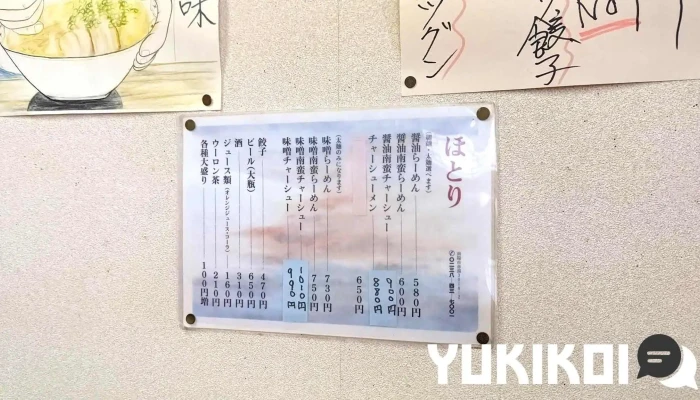 味
餃子
No.1
ほとり
(細麺・太麺選べます)
醤油らーめん 580円
醤油南蛮らーめん 600円
醤油南蛮チャーシュー 900円
チャーシューメン 880円
650円
(太麺のみになります)
味噌らーめん 730円
味噌南蛮らーめん 750円
味噌南蛮チャーシュー 1010円
味噌チャーシュー 990円
餃子 470円
ビール(大瓶) 650円
酒 310円
ジュース類(オレンジジュース・コーラ) 160円
ウーロン茶 210円
各種大盛り 100円増
YUKIKOI